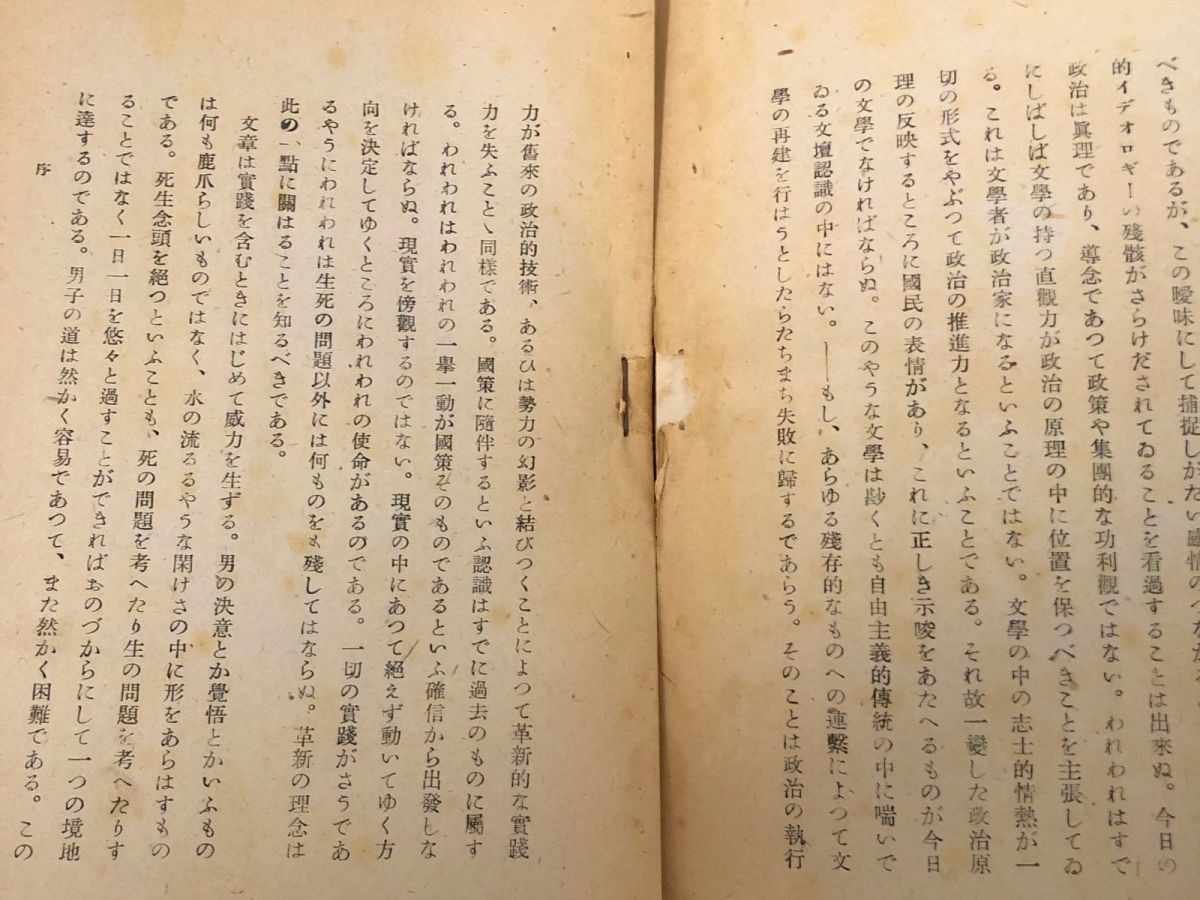 べきものであるが、この曖昧にして捕捉しがたい感情の
的イデオロギーの残骸がさらけだされてゐることを看過することは出來ぬ。今日の
政治は眞理であり、導念であつて政策や集團的な功利觀ではない。われわれはすで
にしばしば文學の持つ直觀力が政治の原理の中に位置を保つべきことを主張してゐ
る。これは文學者が政治家になるといふことではない。文學の中の志士的情熱が一
切の形式をやぶつて政治の推進力となるといふことである。それ故一變した政治原
理の反映するところに國民の表情があり、これに正しき示唆をあたへるものが今日
の文學でなければならぬ。このやうな文學は尠くとも自由主義的傳統の中に喘いで
ゐる文壇認識の中にはない。――もし、あらゆる殘存的なものへの連繫によつて文
學の再建を行はうとしたらたちまち失敗に歸するであらう。そのことは政治の執行
力が舊來の政治的技術、あるひは勢力の幻影と結びつくことによつて革新的な實踐
力を失ふことゝ同樣である。國策に隨伴するといふ認識はすでに過去のものに屬す
る。われわれはわれわれの一擧一動が國策そのものであるといふ確信から出發しな
ければならぬ。現實を傍觀するのではない。現實の中にあつて絕えず動いてゆく方
向を決定してゆくところにわれわれの使命があるのである。一切の實踐がさうであ
るやうにわれわれは生死の問題以外には何ものをも殘してはならぬ。革新の理念は
此の一點に關はることを知るべきである。
文章は實踐を含むときにはじめて威力を生ずる。男の決意とか覺悟とかいふもの
は何も鹿爪らしいものではなく、水の流るるやうな閑けさの中に形をあらはすもの
である。死生念頭を絕つといふことも、死の問題を考へたり生の問題を考へたりす
ることではなく一日一日を悠々と過すことができればおのづからにして一つの境地
に達するのである。男子の道は然かく容易であつて、また然かく困難である。この
序